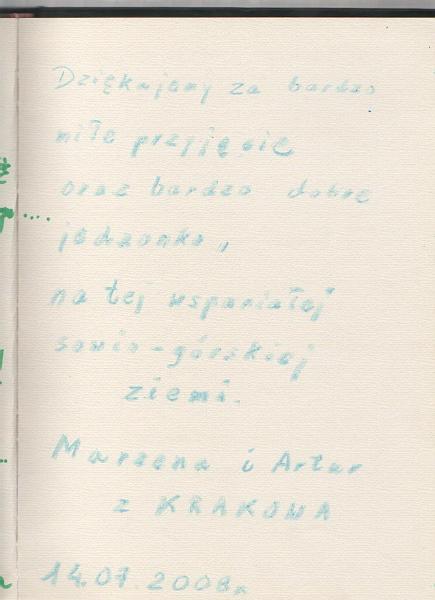 Dziękujemy za bardzo
miłe przyjęcie
oraz bardzo dobre
jedzonko,,
na tej wspaniałej
sowio-górskiej
ziemi.
Marzena i Artur
z KRAKOWA
14.07.2008r